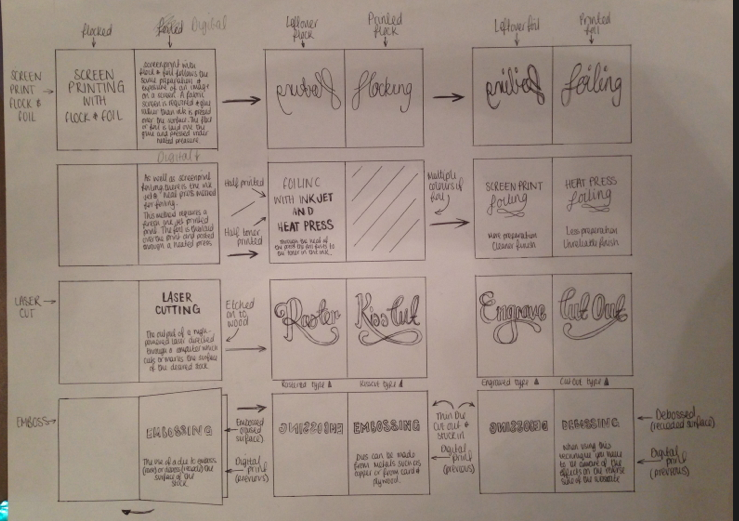 flocked
Digital
Leftover
flock
Printed
flock
Leftover foil
Printed
foil
SCREEN
PRINT
FLOCK &
FOIL
SCREEN
PRINTING
WITH
FLOCK & FOIL
Screenprint with
flock & foil follows the
over the surface. The flock
or foil is laid over the
glue and pressed under
heated pressure
flocking
flocking
foiling
foiling
Digital
As well as screenprint
foiling there is the ink
heat press method
for foiling.
This method requires a
print. The foil is
over the print and
through a heated press
Half printed
Half toner
printed
FOILING
WITH INKJET
AND
HEAT PRESS
through the heat of
the toner in the ink.
Multiple
colours of
foil
SCREEN PRINT
foiling
More preparation
Cleaner finish
HEAT PRESS
foiling
Less preparation
Unreliable finish
LASER
CUT
LASER
CUTTING
The output of a high-
powered laser directed
through a computer which
cuts or marks the surface
of the desired stock
Etched
on to
wood
Raster
Kiss Cut
Engrave
Cut Out
type
type
Engraved type
Cut out type
EMBOSS
EMBOSSING
The use of a die to emboss
surface of the
stock
Embossed
(raised
surface)
Digital
print
(previous)
EMBOSSING
EMBOSSING
Dies can be made
from metals such as
copper or from card &
plywood.
Thin die
cut out &
stuck in
Digital
print
(previous)
EMBOSSING
DEBOSSING
When using this
technique you have
to be aware of the
effects on the
side of the
Debossed
(recessed surface)
Digital
print
(previous)